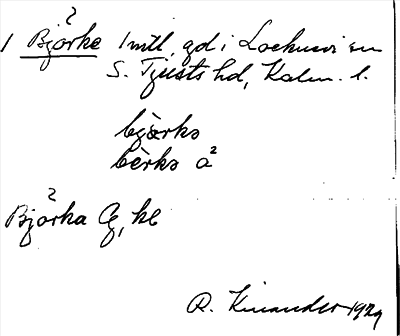 1 Björke 1 mtl, gd i Locknevi sn
S. Tjusts hd, Kalm. l.
bjærkə
bèrkə a²
Björka Æ, kl
R. Kinander 1929